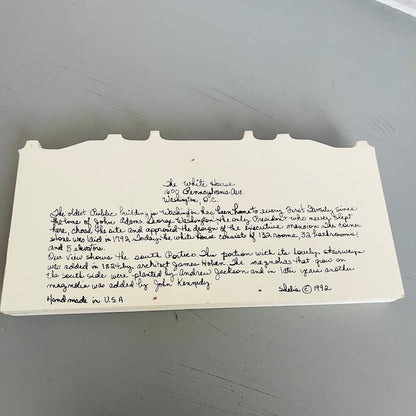 The White House
1600 Pennsylvania Ave.
Washington, D.C.
The oldest Public building in Washington has been home to every First Family since
the time of John Adams. George Washington the only President who never slept
here, chose the site and approved the design of the executive mansion. The corner
stone was laid in 1792. Today the white House consists of 132 rooms, 32 bathrooms
and 5 elevators.
Our View shows the south Portico. This portion with its lovely stairways
was added in 1824 by architect James Hoban. The magnolias that grow on
the south side were planted by Andrew Jackson and in later years another
magnolia was added by John Kennedy
Handmade in U.S.A.
© 1992